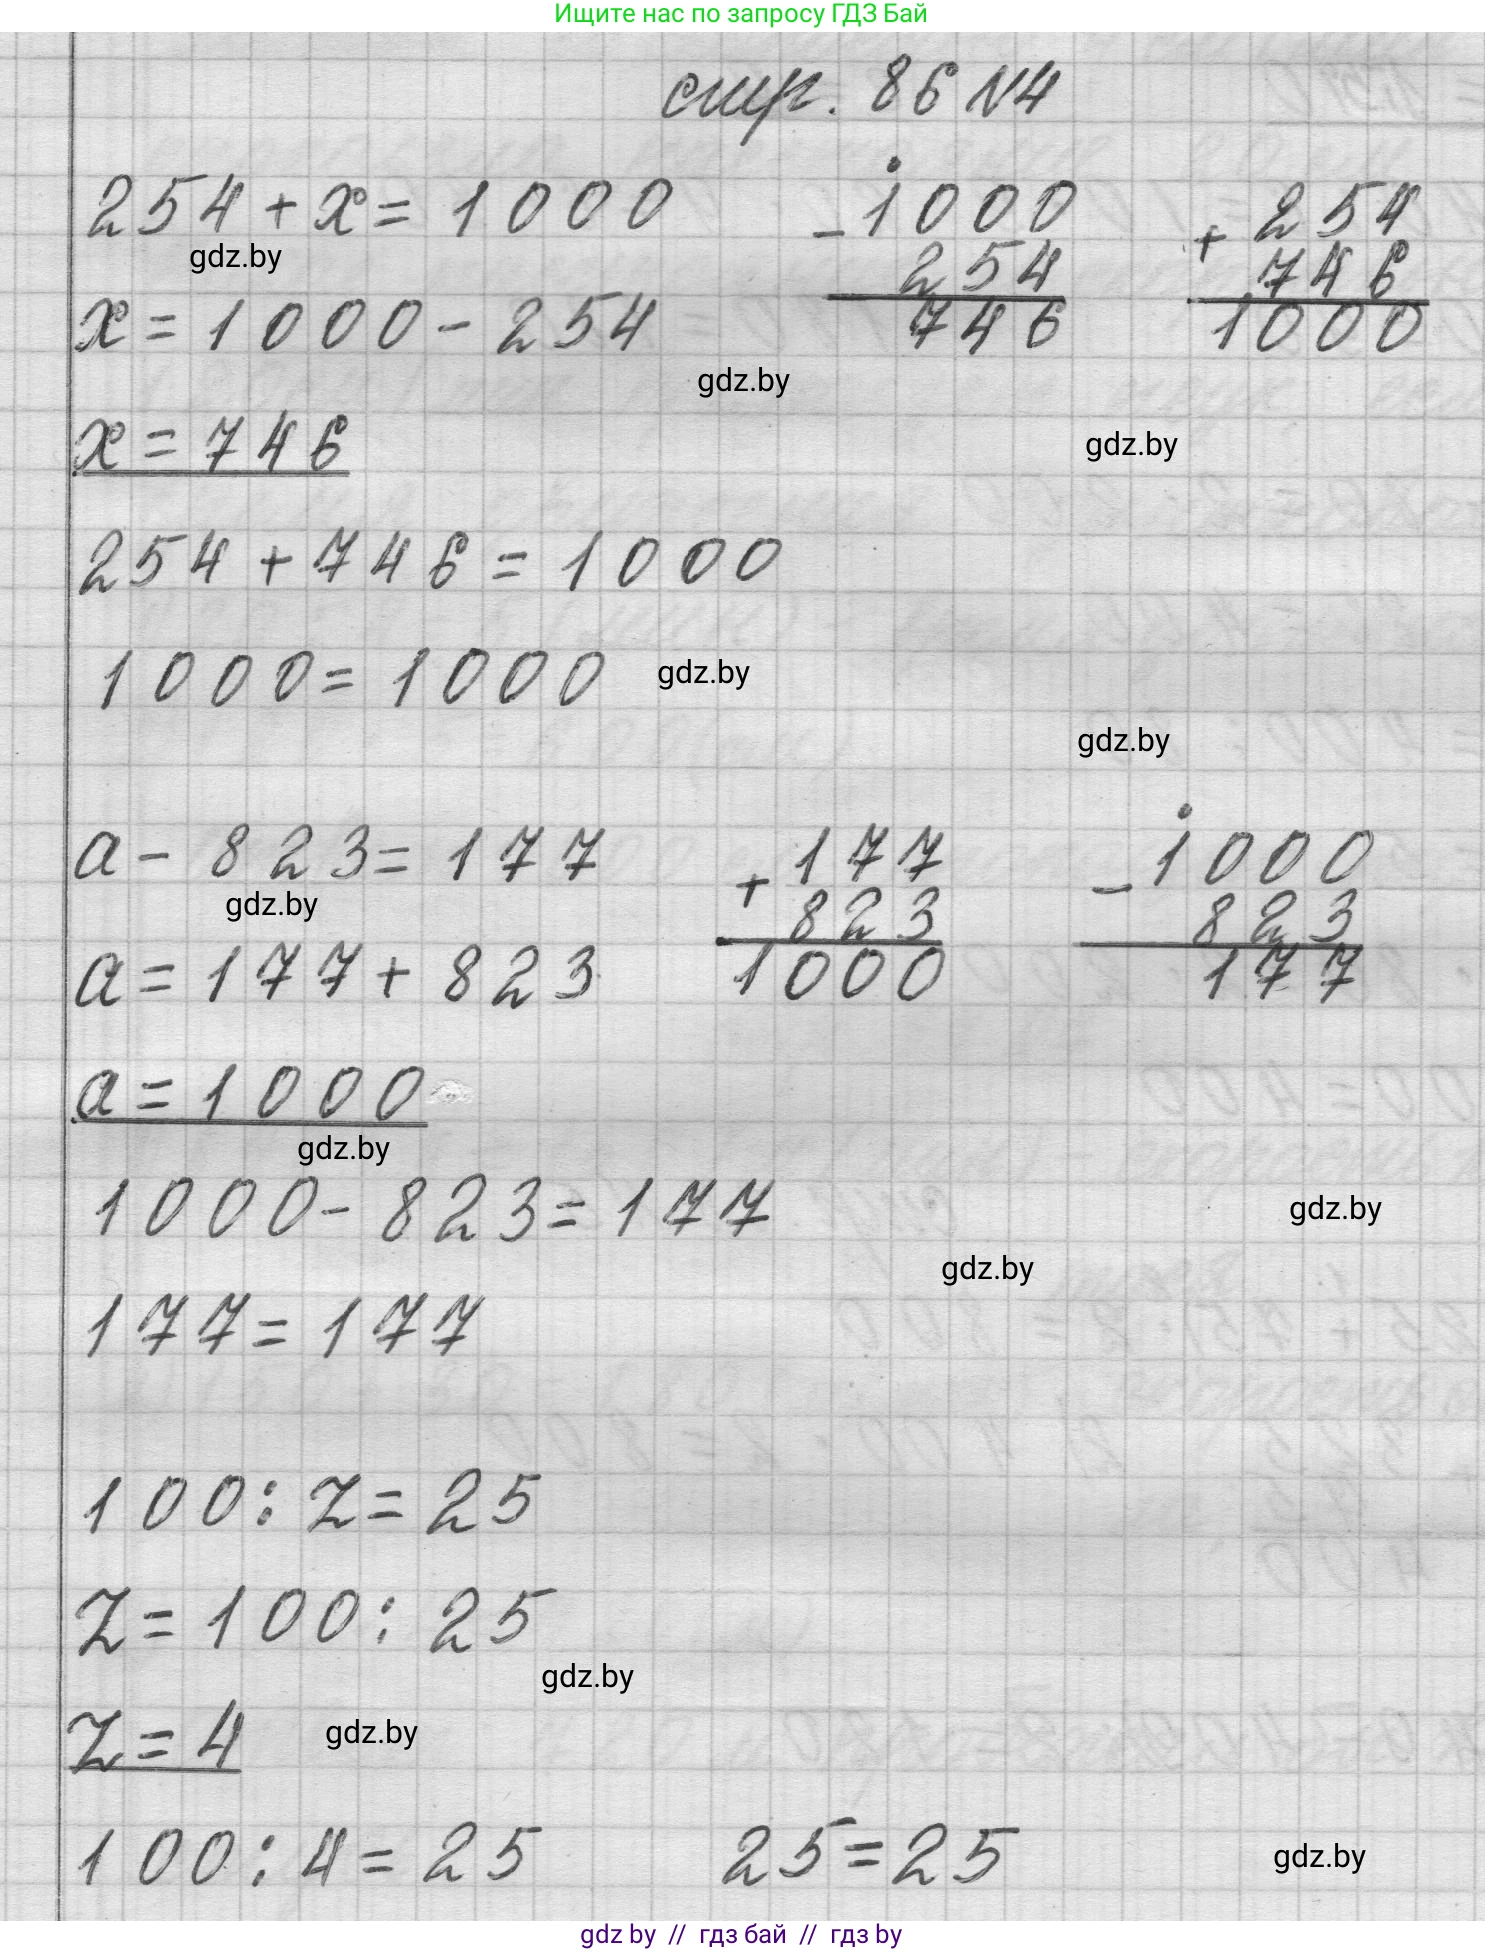 Ищите нас по запросу ГДЗ Бай
стр. 86 №4
254 + x = 1000
- 1000
254
746
+ 254
746
1000
gdz.by
x = 1000 - 254
gdz.by
x = 746
gdz.by
254 + 746 = 1000
1000 = 1000
gdz.by
gdz.by
a - 823 = 177
+ 177
823
1000
- 1000
823
177
gdz.by
a = 177 + 823
a = 1000
gdz.by
1000 - 823 = 177
gdz.by
gdz.by
177 = 177
100 : z = 25
z = 100 : 25
gdz.by
z = 4
gdz.by
100 : 4 = 25 25 = 25
gdz.by
gdz by // гдз бай // гдз by